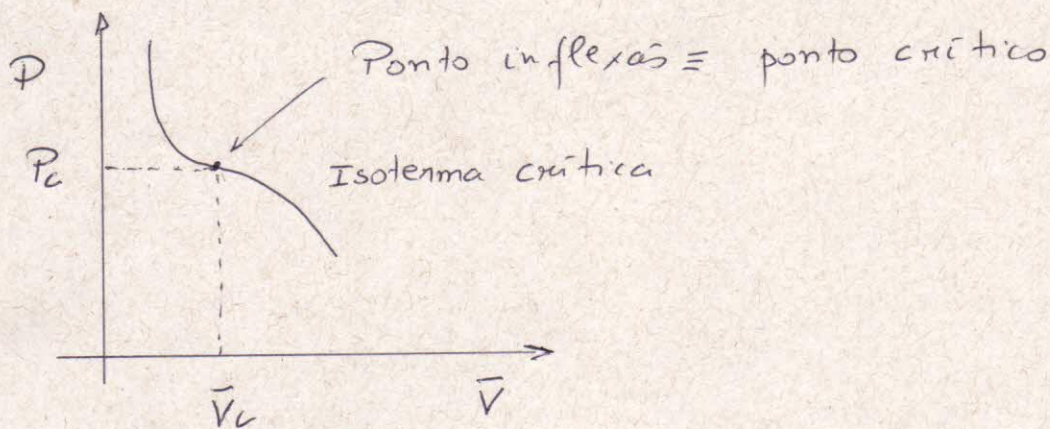 P
Ponto inflexão ≡ ponto crítico
P_c
Isoterma crítica
V̄_c
V̄